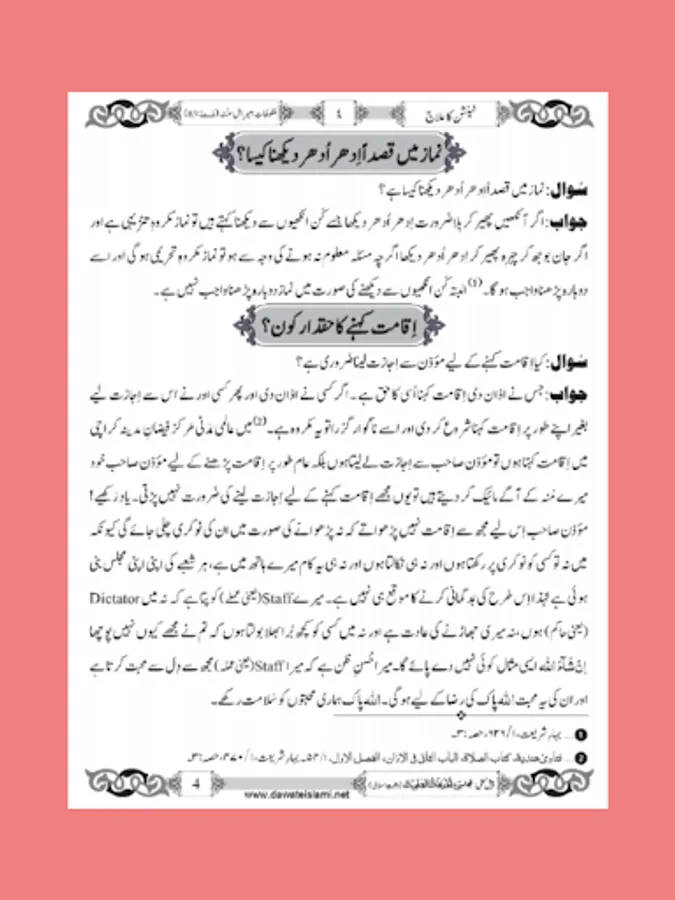 ٹینشن کا علاج ٤ ملفوظات امیر اہل سنت
نماز میں قصداً اِدھر اُدھر دیکھنا کیسا؟
سُوال: نماز میں قصداً اِدھر اُدھر دیکھنا کیسا ہے؟
جواب: اگر آنکھیں پھیر کر بِلا ضَرورت اِدھر اُدھر دیکھا جسے کن انکھیوں سے دیکھنا کہتے ہیں تو نماز مکروہِ تنزیہی ہے اور
اگر جان بوجھ کر چہرہ پھیر کر اِدھر اُدھر دیکھا اگرچہ مسئلہ معلوم نہ ہونے کی وجہ سے ہو تو نماز مکروہِ تحریمی ہو گی اور اسے
دوبارہ پڑھنا واجب ہو گا۔(1) البتہ کن انکھیوں سے دیکھنے کی صورت میں نماز دوبارہ پڑھنا واجب نہیں ہے۔
اِقامت کہنے کا حقدار کون؟
سُوال: کیا اِقامت کہنے کے لیے مؤذن سے اِجازت لینا ضَروری ہے؟
جواب: جس نے اذان دی اِقامت کہنا اُسی کا حق ہے۔ اگر کسی نے اذان دی اور پھر کسی اور نے اس سے اِجازت لیے
بغیر اپنے طور پر اِقامت کہنا شروع کر دی اور اسے ناگوار گزرا تو یہ مکروہ ہے۔(2) میں عالمی مَدَنی مَرکز فیضانِ مدینہ کراچی
میں اِقامت کہتا ہوں تو مؤذن صاحب سے اِجازت لے لیتا ہوں بلکہ عام طور پر اِقامت پڑھنے کے لیے مؤذن صاحب خود
میرے مُنہ کے آگے مائیک کر دیتے ہیں تو یوں مجھے اِقامت کہنے کے لیے اِجازت لینے کی ضَرورت نہیں پڑتی۔ یاد رَکھیے!
مؤذن صاحب اِس لیے مجھ سے اِقامت نہیں پڑھواتے کہ نہ پڑھوانے کی صورت میں ان کی نوکری چلی جائے گی کیونکہ
میں نہ تو کسی کو نوکری پر رکھتا ہوں اور نہ ہی نکالتا ہوں اور نہ ہی یہ کام میرے ہاتھ میں ہے، ہر شعبے کی اپنی اپنی مجلس بنی
ہوئی ہے لہٰذا اِس طرح کی بدگمانی کرنے کا موقع ہی نہیں ہے۔ میرے Staff (یعنی عملے) کو پتا ہے کہ نہ میں Dictator
(یعنی حاکم) ہوں، نہ میری جھاڑنے کی عادت ہے اور نہ میں کسی کو کچھ بُرا بھلا بولتا ہوں کہ تم نے مجھے کیوں نہیں پوچھا
اِنْ شَآءَ اللہ ایسی مثال کوئی نہیں دے پائے گا۔ میرا حُسنِ ظن ہے کہ میرا Staff (یعنی عملہ) مجھ سے دِل سے محبت کرتا ہے
اور ان کی یہ محبت اللہ پاک کی رضا کے لیے ہو گی۔ اللہ پاک ہماری محبتوں کو سَلامت رکھے۔
1 ... بہارِ شریعت، ۱/ ۶۲۶، حصہ: ۳۔
2 ... فتاویٰ ھندیة، کتاب الصلاة، الباب الثانی فی الاذان، الفصل الاول، ۱/ ۵۴۔ بہارِ شریعت، ۱/ ۴۷۰، حصہ: ۳۔
4
www.dawateislami.net